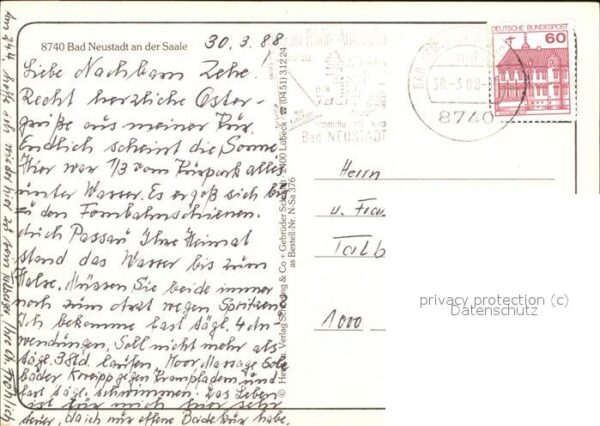 8740 Bad Neustadt an der Saale
30.3.88
Liebe Nachbarn Zehe.
Recht herzliche Oster-
grüße aus meiner Kur.
Endlich scheint die Sonne
Hier war 1/3 vom Kurpark alles
unter Wasser. Es ergoß sich bis
zu den Fernbahnschienen.
Auch Passau Ihre Heimat
stand das Wasser bis zum
Halse. Müssen Sie beide immer
noch zum Arzt wegen Spritzen
Ich bekomme fast tägl. 4 An-
wendungen. Soll nicht mehr als
tägl. 3 Std. laufen. Moor Massage Sole
bäder Kneipp gegen Krampfadern und
fast tägl. schwimmen. Das Leben
ist für mich hier sehr
teuer, da ich nur offene Badekur habe.
Am 24.4. hoffe ich wieder hier zu sein
Ihre Ch. Fröhlich
Verlag Schöning & Co + Gebrüder Schmidt · 2400 Lübeck · ☎ (0451) 31224
Bestell-Nr. N-Sa 376
Bad NEUSTADT
8740
DEUTSCHE BUNDESPOST
60
Herrn
u. Frau
Talb
1000
privacy protection (c)
Datenschutz